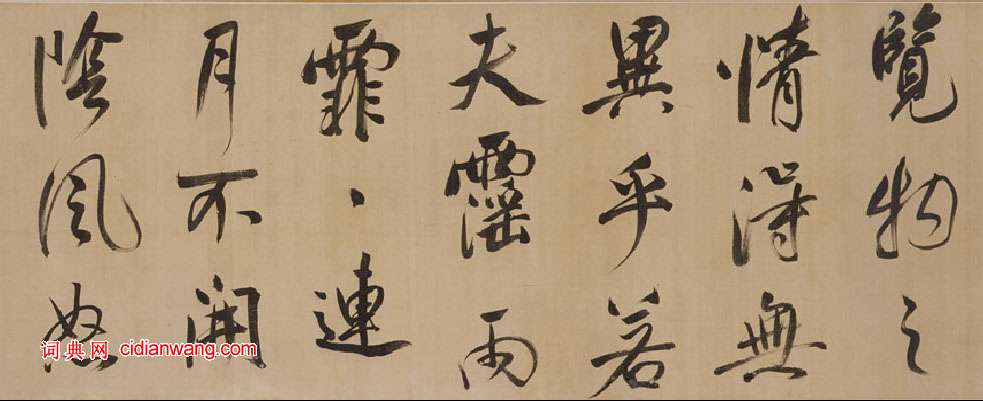 覽物之
情得無
異乎若
夫霪雨
霏、連
月不開
陰風怒
词典网 cidianwang.com